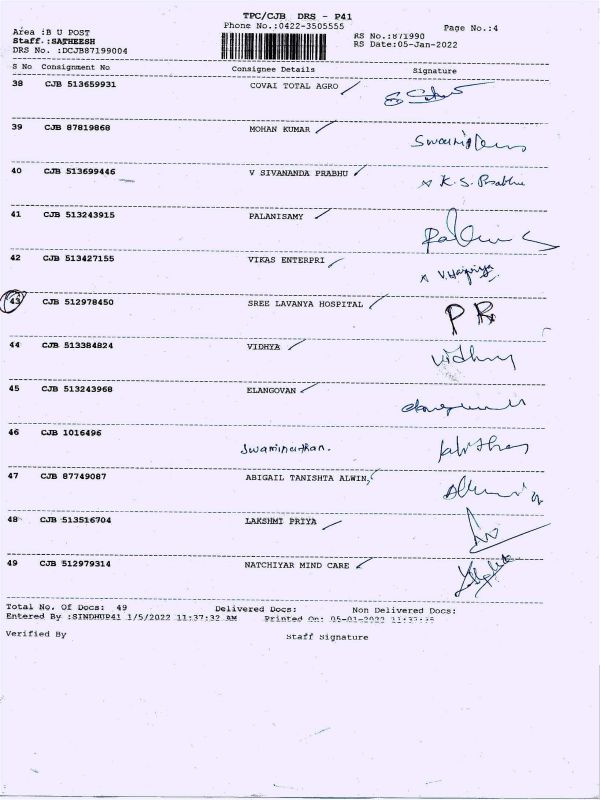 TPC/CJB DRS - P41
Phone No.:0422-3505555
Page No.:4
Area :B U POST
Staff.:SATHEESH
DRS No. :DCJB87199004
RS No.:871990
RS Date:05-Jan-2022
S No Consignment No Consignee Details Signature
38 CJB 513659931 COVAI TOTAL AGRO
39 CJB 87819868 MOHAN KUMAR
40 CJB 513699446 V SIVANANDA PRABHU x K.S. Prabhu
41 CJB 513243915 PALANISAMY
42 CJB 513427155 VIKAS ENTERPRI
43 CJB 512978450 SREE LAVANYA HOSPITAL
44 CJB 513384824 VIDHYA Vidhya
45 CJB 513243968 ELANGOVAN
46 CJB 1016496 Swaminathan.
47 CJB 87749087 ABIGAIL TANISHTA ALWIN,
48 CJB 513516704 LAKSHMI PRIYA
49 CJB 512979314 NATCHIYAR MIND CARE
Total No. Of Docs: 49 Delivered Docs: Non Delivered Docs:
Entered By :SINDHUP41 1/5/2022 11:37:32 AM Printed On: 05-01-2022
Verified By Staff Signature